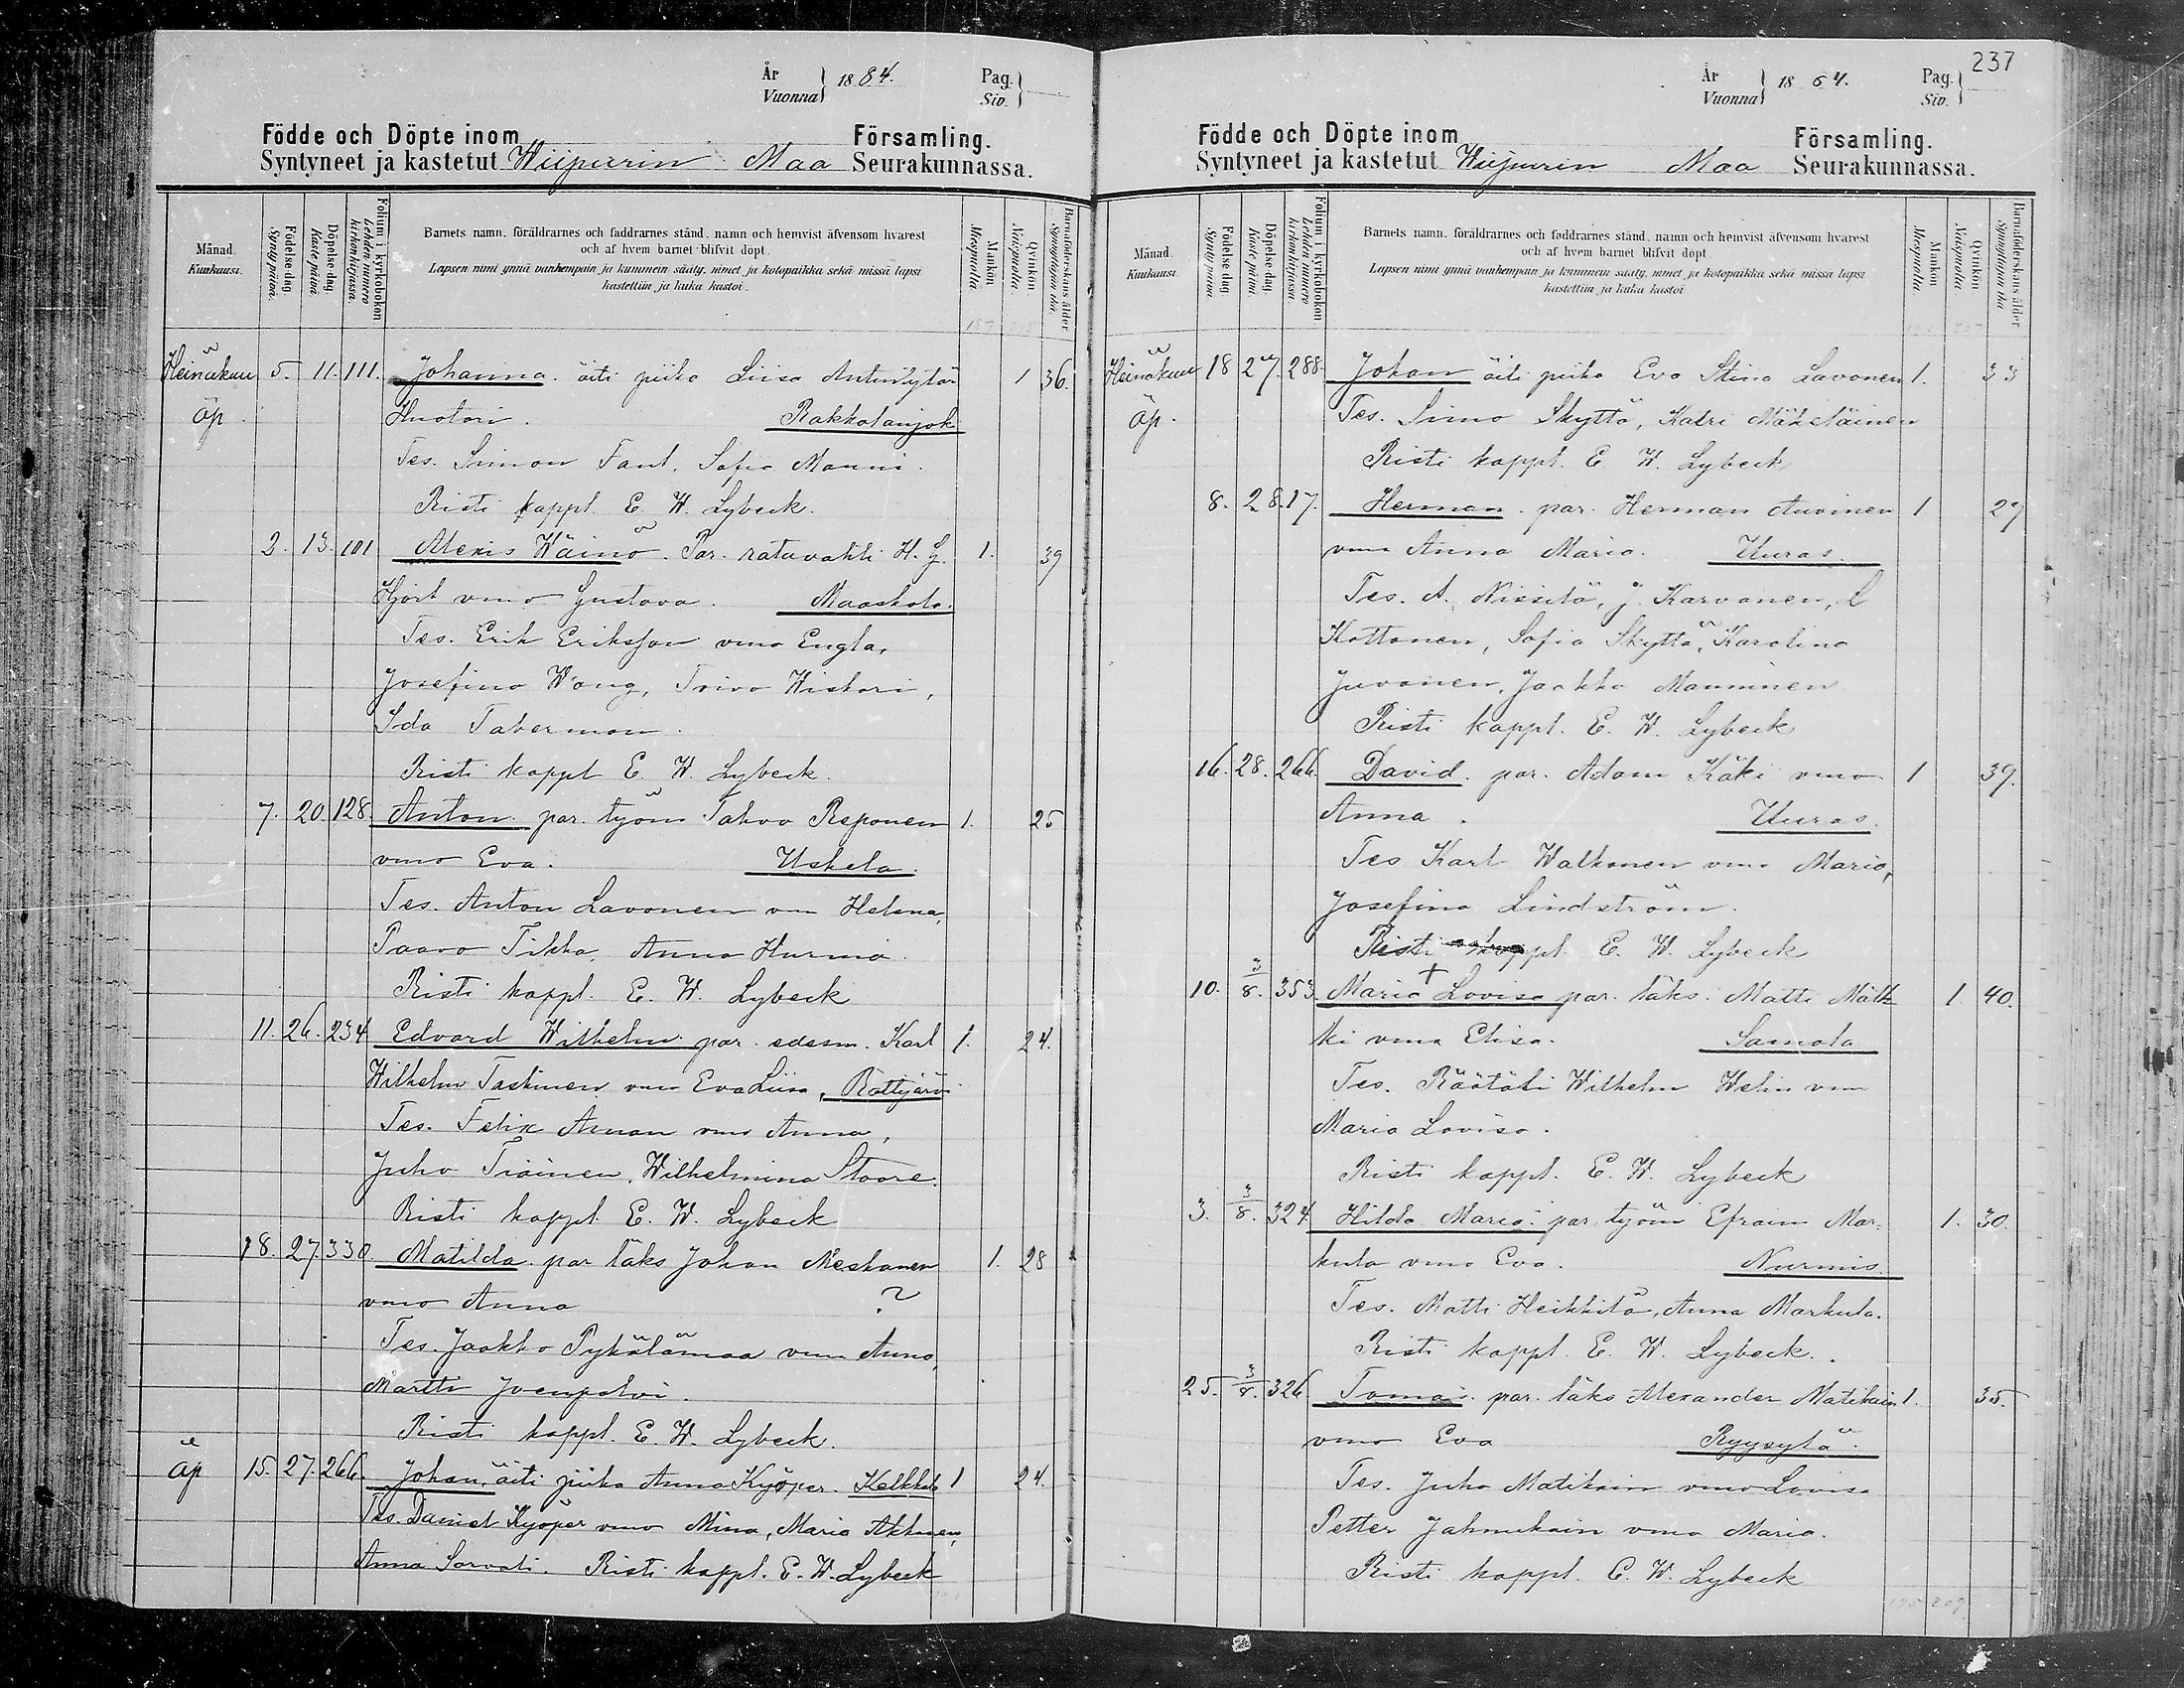 År
Vuonna } 1884.
Pag.
Siv. }
Födde och Döpte inom Församling.
Syntyneet ja kastetut Wiipurin Maa Seurakunnassa.
Månad. Kuukausi.
Födelse dag. Synty päivä.
Döpelse dag. Kaste päivä.
Folium i kyrkoboken Lehden numero kirkonkirjassa.
Barnets namn, föräldrarnes och faddrarnes stånd, namn och hemvist äfvensom hvarest
och af hvem barnet blifvit döpt.
Lapsen nimi ynnä vanhempain ja kummein sääty, nimet ja kotopaikka sekä missä lapsi
kastettiin ja kuka kastoi.
Mankön Miespuolia.
Qvinkön Naispuolia.
Barnaföderskans ålder Synnyttäjän ikä.
Heinäkuu 5. 11. 111. Johanna. äiti piika Liisa Antintytär 1 36.
äp. Huotari. Rakkolanjok
Tes. Simon Fant, Sofia Manni.
Risti kappl. E. W. Lybeck.
2. 13. 101 Alexis Wäinö. Par. ratavahti H. G. 1. 39
Hjört vmo Gustava. Maaskola.
Tes. Erik Eriksson vmo Engla,
Josefina Wang, Toivo Wistori,
Ida Taberman.
Risti kappl E. W. Lybeck.
7. 20. 128. Anton. par. työm Tahvo Reponen 1. 25
vmo Eva. Uskela.
Tes. Anton Lavonen vm Helena,
Paavo Tikka, Anna Hurma.
Risti kappl. E. W. Lybeck
11. 26. 234 Edvard Wilhelm par. edesm. Karl 1. 24.
Wilhelm Taskinen vmo Eva Liisa, Rättijärvi
Tes. Felix Aman vmo Anna,
Juho Tiainen, Wilhelmina Stoore.
Risti kappl. E. W. Lybeck
18. 27. 330. Matilda. par läks Johan Meskanen 1. 28
vmo Anna ?
Tes. Jaakko Pykälämaa vmo Anna,
Martti Joenpolvi.
Risti kappl. E. W. Lybeck.
äp 15. 27. 266. Johan, äiti piika Anna Kyöper. Kelkkala 1 24.
Tes. Daniel Kyöper vmo Mina, Maria Akkanen,
Anna Sorvali. Risti kappl. E. W. Lybeck
237
År
Vuonna } 1864.
Pag.
Siv. }
Födde och Döpte inom Församling.
Syntyneet ja kastetut Wiipurin Maa Seurakunnassa.
Månad. Kuukausi
Födelse dag. Synty päivä.
Döpelse dag. Kaste päivä.
Folium i kyrkoboken Lehden numero kirkonkirjassa.
Barnets namn, föräldrarnes och faddrarnes stånd, namn och hemvist äfvensom hvarest
och af hvem barnet blifvit döpt.
Lapsen nimi ynnä vanhempain ja kummein sääty, nimet ja kotopaikka sekä missä lapsi
kastettiin ja kuka kastoi
Mankön Miespuolia
Qvinkön Naispuolia
Barnaföderskans ålder Synnyttäjän ikä
Heinäkuu 18 27. 288. Johan äiti piika Eva Stina Lavonen 1. 33
äp. Tes. Simo Skyttä, Katri Mäkeläinen
Risti kappl. E. W. Lybeck
8. 28. 17. Herman. par. Herman Auvinen 1 27
vmo Anna Maria. Uuras.
Tes. A. Nissilä, J. Karvanen, L
Kottonen, Sofia Skyttä, Karolina
Juvonen, Jaakko Manninen
Risti kappl. E. W. Lybeck
16. 28. 266. David. par. Adam Käki vmo 1 39.
Anna. Uuras.
Tes Karl Walkonen vmo Maria,
Josefina Lindström.
Risti kappl. E. W. Lybeck
10. 3/8. 353. Maria † Lovisa par. läks. Matti Mätt 1. 40.
ki vmo Elisa. Samola
Tes. Räätäli Wilhelm Welin vmo
Maria Lovisa.
Risti kappl. E. W. Lybeck
3. 3/8. 324 Hilda Maria. par. työm Efraim Mar- 1. 30.
kula vmo Eva. Nurmis
Tes. Matti Heikkilä, Anna Markula.
Risti kappl. E. W. Lybeck.
25. 3/8. 326 Tomas. par. läks Alexander Matikain 1. 35.
vmo Eva Ryysylä.
Tes. Juho Matikain vmo Lovisa
Petter Jahnukain vmo Maria.
Risti kappl. E. W. Lybeck